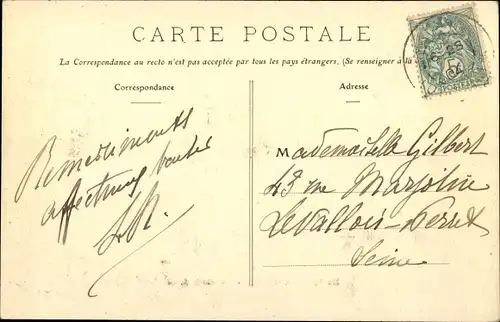 CARTE POSTALE
La Correspondance au recto n'est pas acceptée par tous les pays étrangers. (Se renseigner à la
Correspondance
Adresse
Remerciements
affectueux
Mademoiselle Gilbert
43 rue Marjolin
Levallois-Perret
Seine